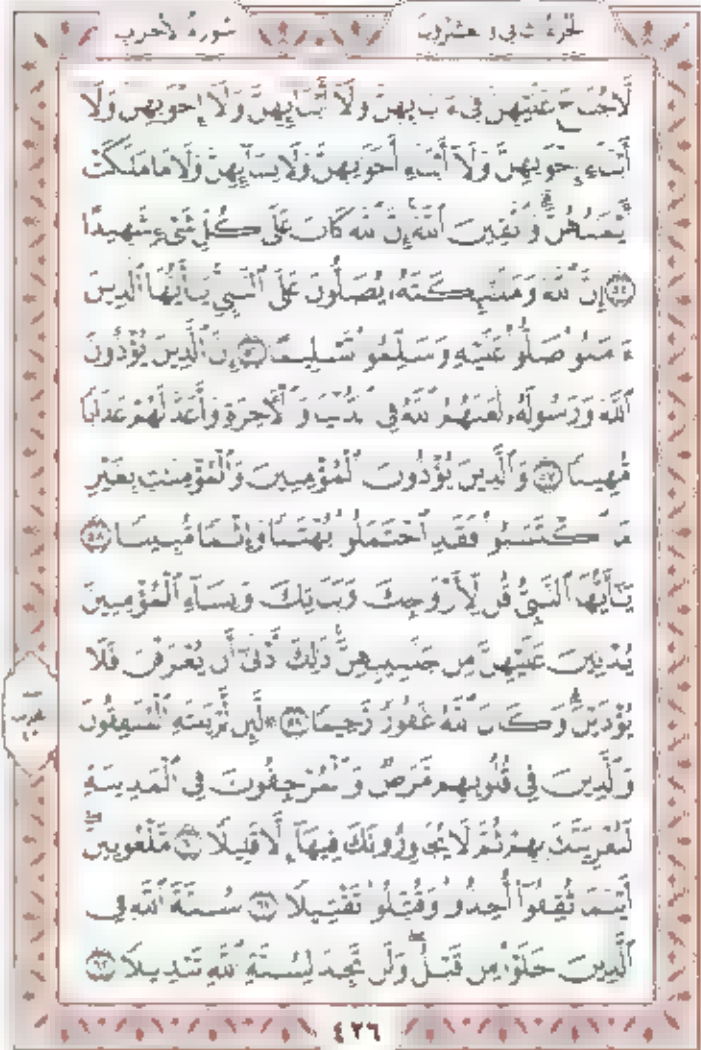 الجزء الثاني والعشرون سورة الأحزاب
لَّا جُنَاحَ عَلَيْهِنَّ فِىٓ ءَابَآئِهِنَّ وَلَآ أَبْنَآئِهِنَّ وَلَآ إِخْوَٰنِهِنَّ وَلَآ
أَبْنَآءِ إِخْوَٰنِهِنَّ وَلَآ أَبْنَآءِ أَخَوَٰتِهِنَّ وَلَا نِسَآئِهِنَّ وَلَا مَا مَلَكَتْ
أَيْمَٰنُهُنَّ ۗ وَٱتَّقِينَ ٱللَّهَ ۚ إِنَّ ٱللَّهَ كَانَ عَلَىٰ كُلِّ شَىْءٍ شَهِيدًا
٥٥ إِنَّ ٱللَّهَ وَمَلَٰٓئِكَتَهُۥ يُصَلُّونَ عَلَى ٱلنَّبِىِّ ۚ يَٰٓأَيُّهَا ٱلَّذِينَ
ءَامَنُوا۟ صَلُّوا۟ عَلَيْهِ وَسَلِّمُوا۟ تَسْلِيمًا ٥٦ إِنَّ ٱلَّذِينَ يُؤْذُونَ
ٱللَّهَ وَرَسُولَهُۥ لَعَنَهُمُ ٱللَّهُ فِى ٱلدُّنْيَا وَٱلْءَاخِرَةِ وَأَعَدَّ لَهُمْ عَذَابًا
مُّهِينًا ٥٧ وَٱلَّذِينَ يُؤْذُونَ ٱلْمُؤْمِنِينَ وَٱلْمُؤْمِنَٰتِ بِغَيْرِ
مَا ٱكْتَسَبُوا۟ فَقَدِ ٱحْتَمَلُوا۟ بُهْتَٰنًا وَإِثْمًا مُّبِينًا ٥٨
يَٰٓأَيُّهَا ٱلنَّبِىُّ قُل لِّأَزْوَٰجِكَ وَبَنَاتِكَ وَنِسَآءِ ٱلْمُؤْمِنِينَ
يُدْنِينَ عَلَيْهِنَّ مِن جَلَٰبِيبِهِنَّ ۚ ذَٰلِكَ أَدْنَىٰٓ أَن يُعْرَفْنَ فَلَا
يُؤْذَيْنَ ۗ وَكَانَ ٱللَّهُ غَفُورًا رَّحِيمًا ٥٩ ۞ لَّئِن لَّمْ يَنتَهِ ٱلْمُنَٰفِقُونَ
وَٱلَّذِينَ فِى قُلُوبِهِم مَّرَضٌ وَٱلْمُرْجِفُونَ فِى ٱلْمَدِينَةِ
لَنُغْرِيَنَّكَ بِهِمْ ثُمَّ لَا يُجَاوِرُونَكَ فِيهَآ إِلَّا قَلِيلًا ٦٠ مَّلْعُونِينَ ۖ
أَيْنَمَا ثُقِفُوٓا۟ أُخِذُوا۟ وَقُتِّلُوا۟ تَقْتِيلًا ٦١ سُنَّةَ ٱللَّهِ فِى
ٱلَّذِينَ خَلَوْا۟ مِن قَبْلُ ۖ وَلَن تَجِدَ لِسُنَّةِ ٱللَّهِ تَبْدِيلًا ٦٢
٤٢٦